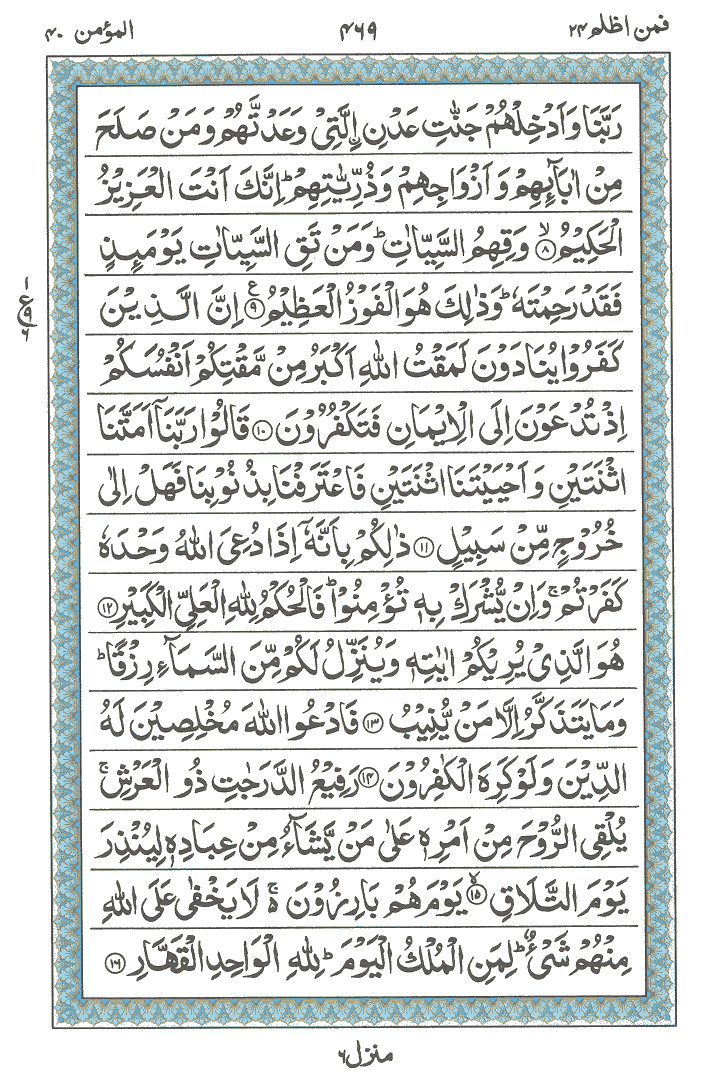 فمن اظلم ۲۴
۴۶۹
المؤمن ۴۰
رَبَّنَا وَاَدْخِلْهُمْ جَنّٰتِ عَدْنِ ۨالَّتِیْ وَعَدْتَّهُمْ وَمَنْ صَلَحَ
مِنْ اٰبَآئِهِمْ وَاَزْوَاجِهِمْ وَذُرِّیّٰتِهِمْ ؕ اِنَّكَ اَنْتَ الْعَزِیْزُ
الْحَكِیْمُ ۙ‏﴿۸﴾ وَقِهِمُ السَّیِّاٰتِ ؕ وَمَنْ تَقِ السَّیِّاٰتِ یَوْمَئِذٍ
فَقَدْ رَحِمْتَهٗ ؕ وَذٰلِكَ هُوَ الْفَوْزُ الْعَظِیْمُ ﴿۹﴾ ع اِنَّ الَّذِیْنَ
كَفَرُوْا یُنَادَوْنَ لَمَقْتُ اللّٰهِ اَكْبَرُ مِنْ مَّقْتِكُمْ اَنْفُسَكُمْ
اِذْ تُدْعَوْنَ اِلَی الْاِیْمَانِ فَتَكْفُرُوْنَ ﴿۱۰﴾ قَالُوْا رَبَّنَاۤ اَمَتَّنَا
اثْنَتَیْنِ وَاَحْیَیْتَنَا اثْنَتَیْنِ فَاعْتَرَفْنَا بِذُنُوْبِنَا فَهَلْ اِلٰی
خُرُوْجٍ مِّنْ سَبِیْلٍ ﴿۱۱﴾ ذٰلِكُمْ بِاَنَّهٗۤ اِذَا دُعِیَ اللّٰهُ وَحْدَهٗ
كَفَرْتُمْ ۚ وَاِنْ یُّشْرَكْ بِهٖ تُؤْمِنُوْا ؕ فَالْحُكْمُ لِلّٰهِ الْعَلِیِّ الْكَبِیْرِ ﴿۱۲﴾
هُوَ الَّذِیْ یُرِیْكُمْ اٰیٰتِهٖ وَیُنَزِّلُ لَكُمْ مِّنَ السَّمَآءِ رِزْقًا ؕ
وَمَا یَتَذَكَّرُ اِلَّا مَنْ یُّنِیْبُ ﴿۱۳﴾ فَادْعُوا اللّٰهَ مُخْلِصِیْنَ لَهُ
الدِّیْنَ وَلَوْ كَرِهَ الْكٰفِرُوْنَ ﴿۱۴﴾ رَفِیْعُ الدَّرَجٰتِ ذُو الْعَرْشِ ۚ
یُلْقِی الرُّوْحَ مِنْ اَمْرِهٖ عَلٰی مَنْ یَّشَآءُ مِنْ عِبَادِهٖ لِیُنْذِرَ
یَوْمَ التَّلَاقِ ۙ﴿۱۵﴾ یَوْمَ هُمْ بَارِزُوْنَ ۚ لَا یَخْفٰی عَلَی اللّٰهِ
مِنْهُمْ شَیْءٌ ؕ لِمَنِ الْمُلْكُ الْیَوْمَ ؕ لِلّٰهِ الْوَاحِدِ الْقَهَّارِ ﴿۱۶﴾
۱
ع ۹
۶
منزل ۶